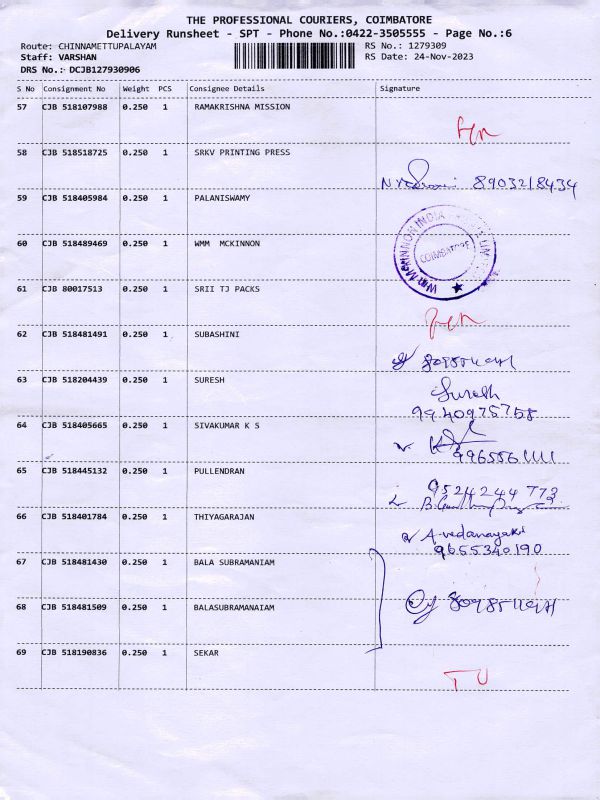 THE PROFESSIONAL COURIERS, COIMBATORE
Delivery Runsheet - SPT - Phone No.:0422-3505555 - Page No.:6
Route: CHINNAMETTUPALAYAM RS No.: 1279309
Staff: VARSHAN RS Date: 24-Nov-2023
DRS No.: DCJB127930906
S No Consignment No Weight PCS Consignee Details Signature
57 CJB 518107988 0.250 1 RAMAKRISHNA MISSION
58 CJB 518518725 0.250 1 SRKV PRINTING PRESS
8903218434
59 CJB 518405984 0.250 1 PALANISWAMY
60 CJB 518489469 0.250 1 WMM MCKINNON
COIMBATORE
61 CJB 80017513 0.250 1 SRII TJ PACKS
62 CJB 518481491 0.250 1 SUBASHINI
63 CJB 518204439 0.250 1 SURESH Suresh
9940975758
64 CJB 518405665 0.250 1 SIVAKUMAR K S
9965561111
65 CJB 518445132 0.250 1 PULLENDRAN 9524244773
66 CJB 518401784 0.250 1 THIYAGARAJAN A.vedanayaki
9655340190
67 CJB 518481430 0.250 1 BALA SUBRAMANIAM
68 CJB 518481509 0.250 1 BALASUBRAMANAIAM
69 CJB 518190836 0.250 1 SEKAR